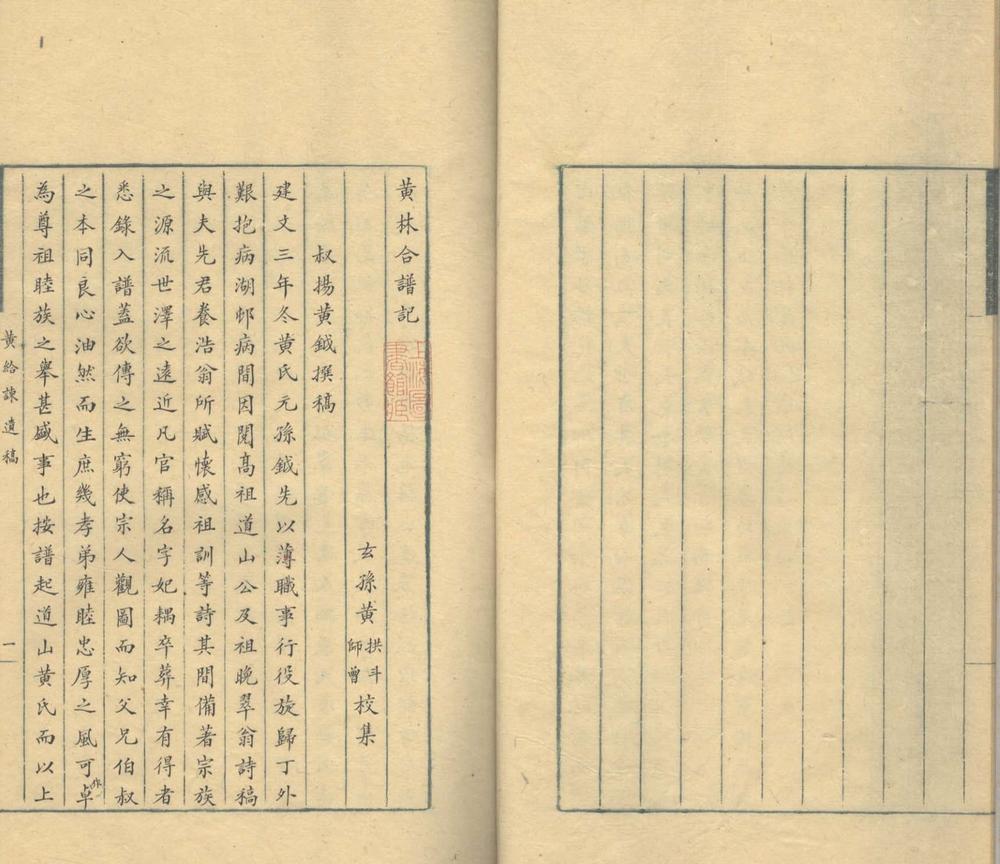 黃林合譜記
玄孫黃拱斗師曾校集
叔揚黃鉞撰稿
建文三年冬黃氏元孫鉞先以薄職事行役旋歸丁外
艱抱病湖邨病間因閱髙祖道山公及祖晚翠翁詩稿
與夫先君養浩翁所賦懷感祖訓等詩其間備著宗族
之源流世澤之遠近凡官稱名字妃耦卒葬幸有得者
悉錄入譜蓋欲傳之無窮使宗人觀圖而知父兄伯叔
之本同良心油然而生庶幾孝弟雍睦忠厚之風可卓
為尊祖睦族之舉甚盛事也按譜起道山黃氏而以上
黃給諫遺稿
一
上海圖書館藏